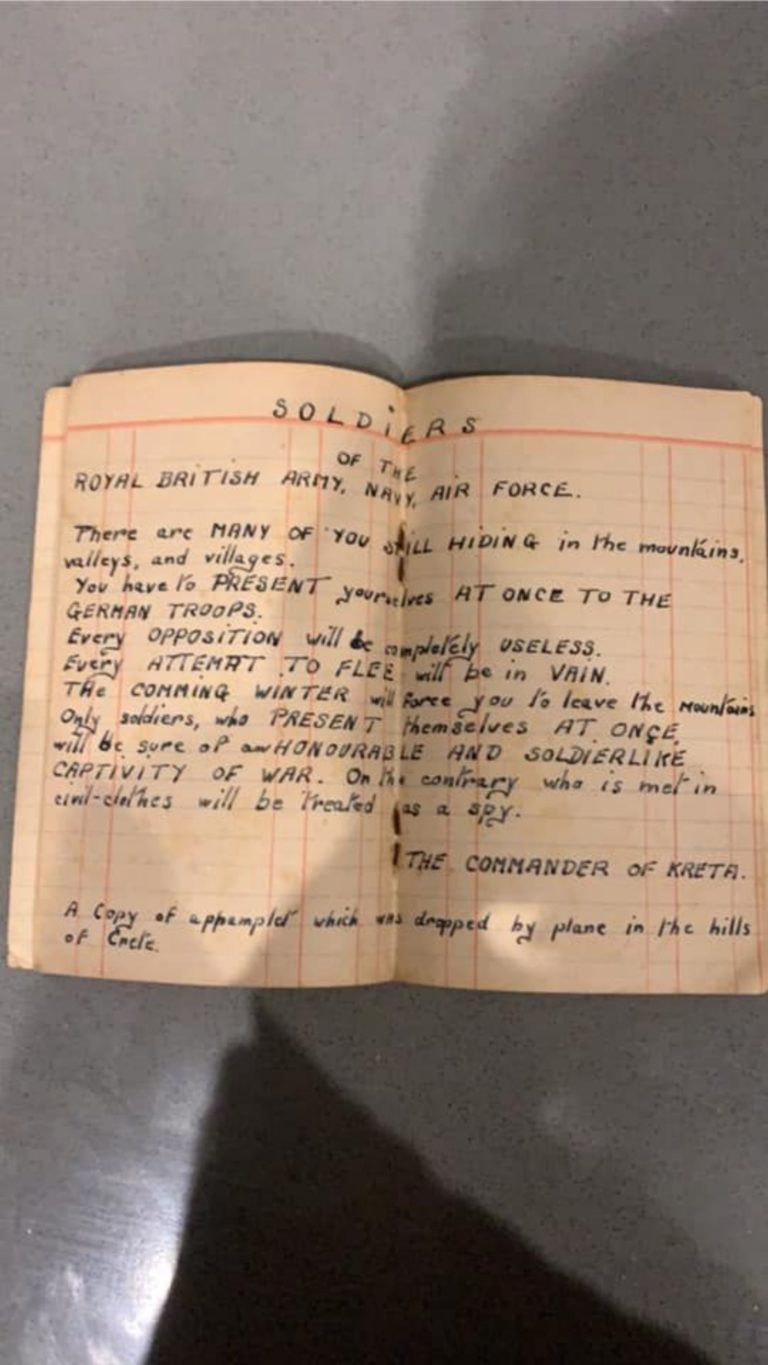 SOLDiERS
OF THE
ROYAL BRITISH ARMY, NAVY, AIR FORCE.
There are MANY OF YOU STILL HIDING in the mountains,
valleys, and villages.
You have to PRESENT yourselves AT ONCE TO THE
GERMAN TROOPS.
Every OPPOSITION will be completely USELESS.
Every ATTEMPT TO FLEE will be in VAIN.
THe COMMING WINTER will force you to leave the mountains
Only soldiers, who PRESENT themselves AT ONCE,
will be sure of an HONOURABLE AND SOLDIERLIKE
CAPTIVITY OF WAR. On the contrary who is met in
civil-clothes will be treated as a spy.
THE COMMANDER OF KRETA.
A Copy of a phamplet which was dropped by plane in the hills
of Crete.